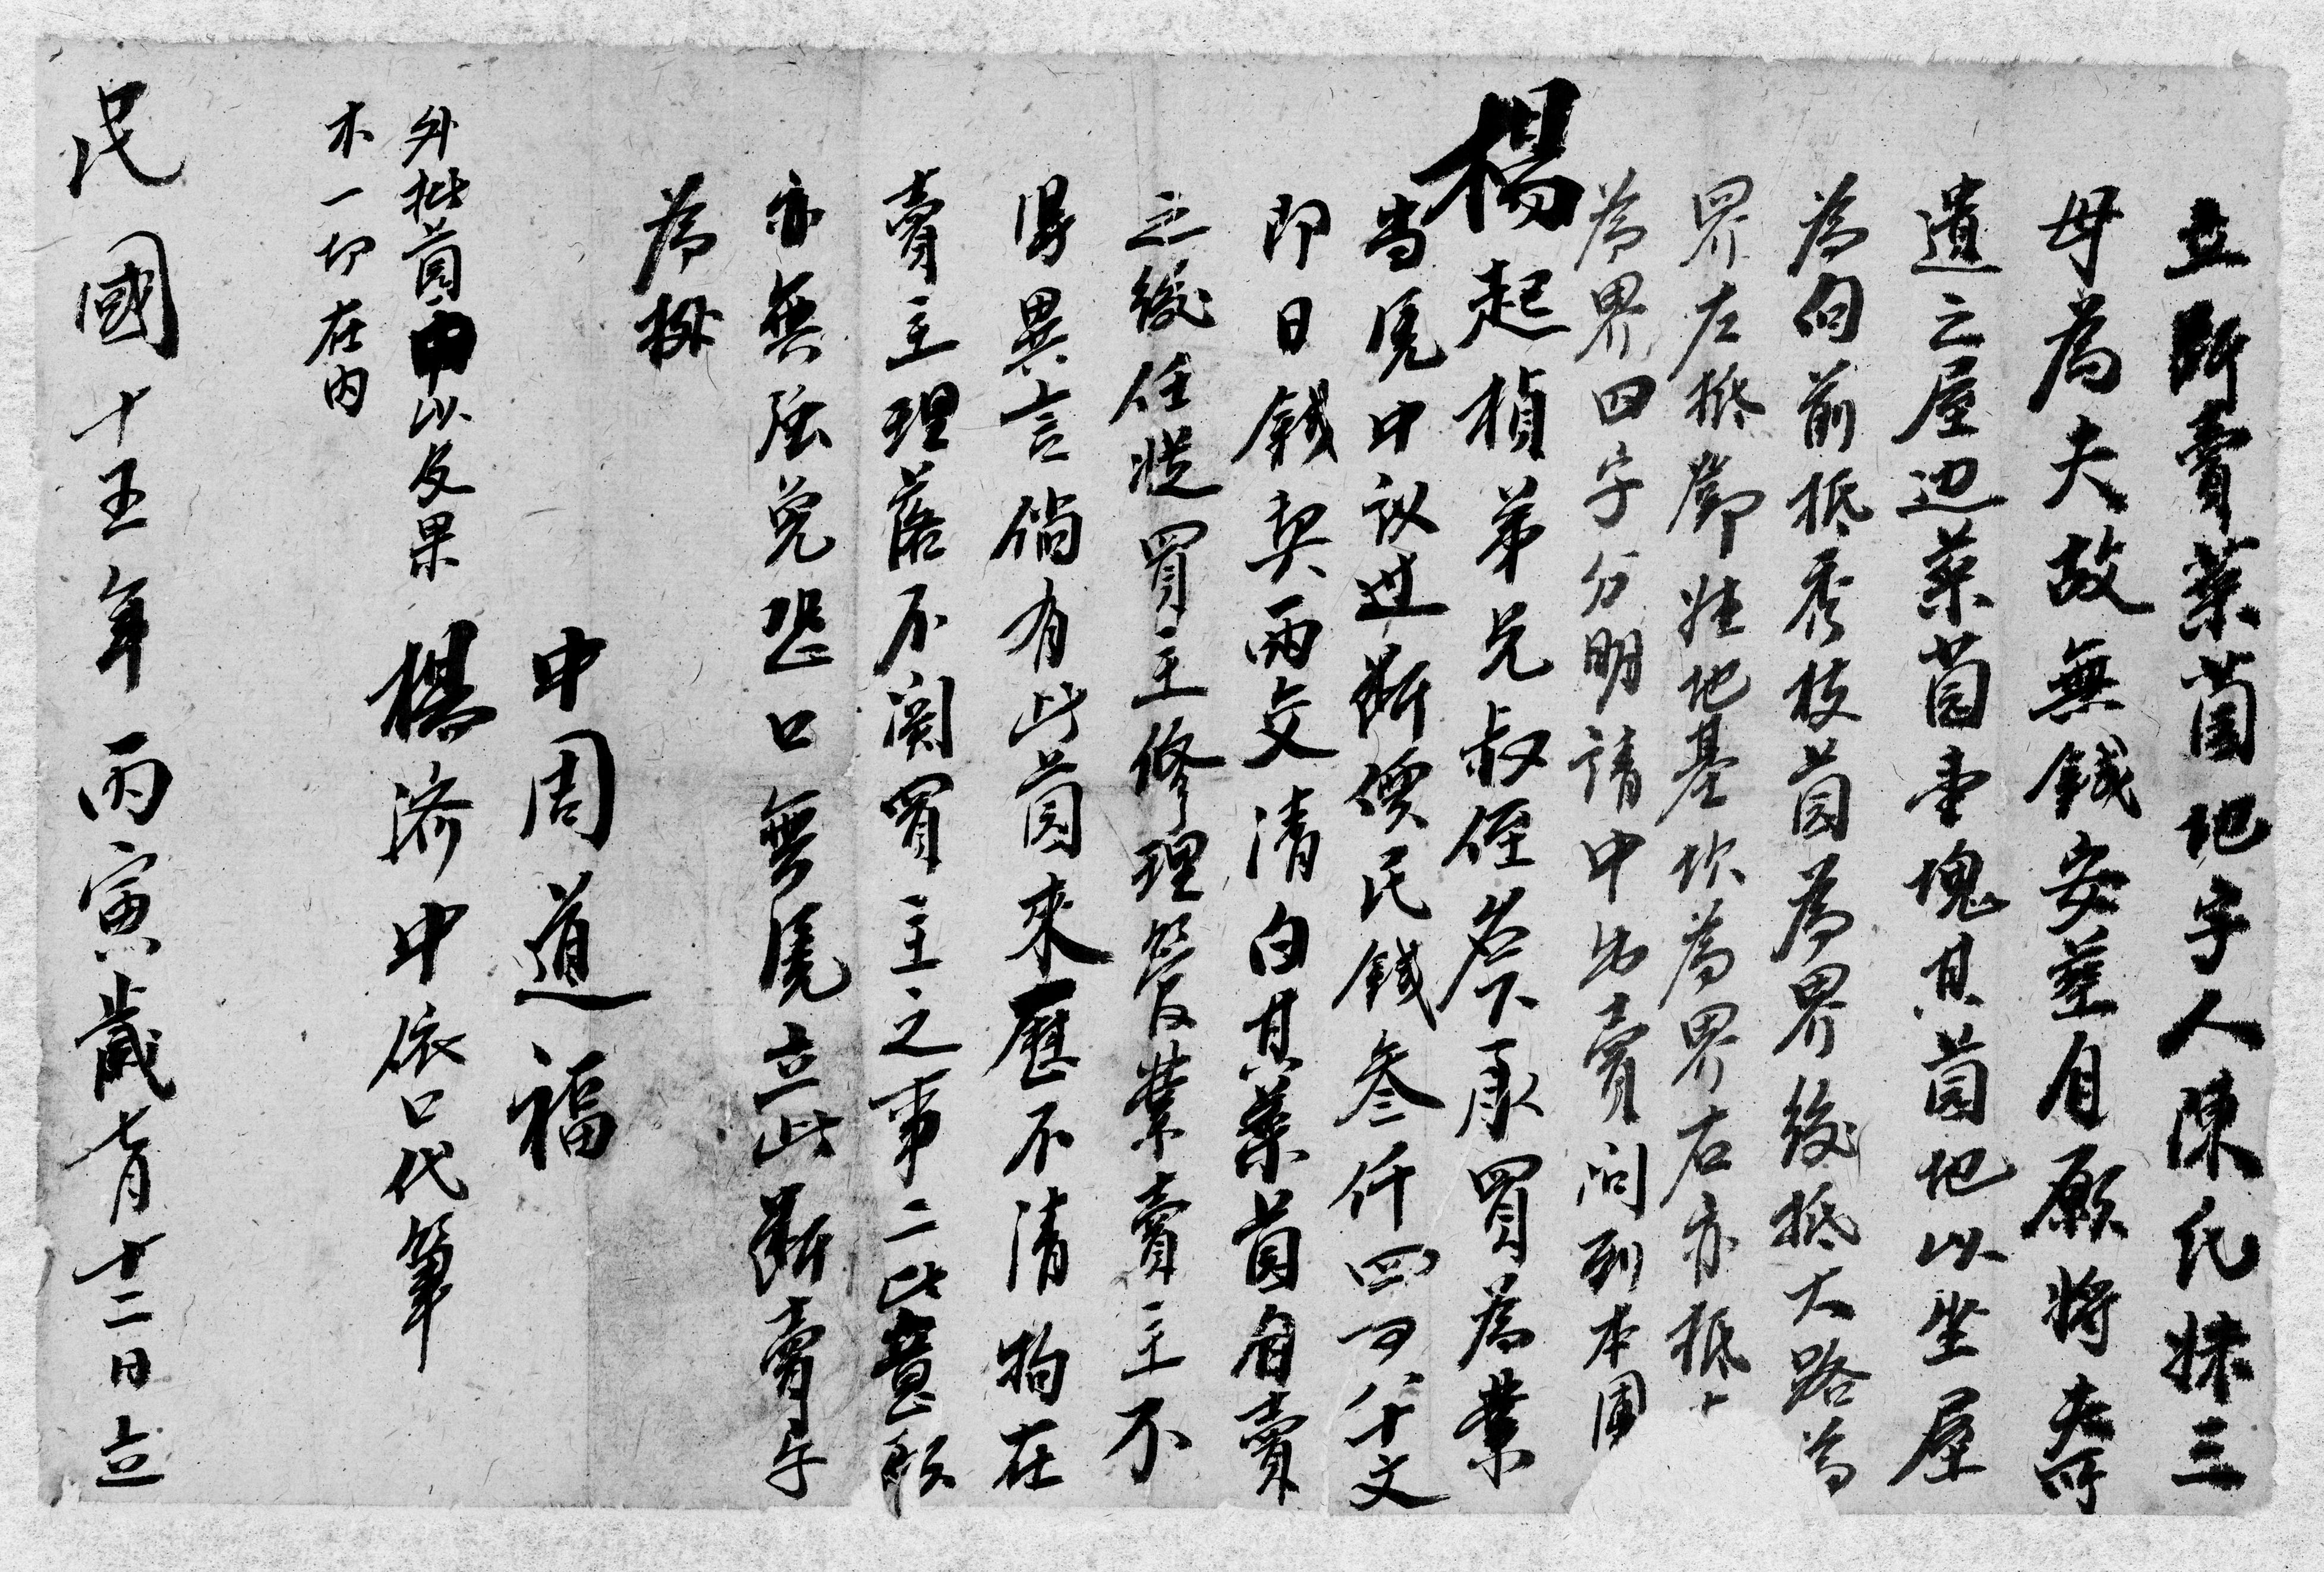 立斷賣菜園地字人陳氏妹三
母為夫故無錢安葬自願將夫所
遺之屋边菜茵壹塊其茵地以坐屋
為向前抵秀枝茵為界後抵大路為
界左抵鄧姓地基坎為界右亦抵
為界四字分明請中出賣问到本團
楊起楨弟兄叔侄名下承買為業
当凭中议过斷價民錢叁仟四百八十文
即日錢契兩交清白其菜茵自賣
之後任從買主修理管業賣主不
得異言倘有此茵來歷不清拘在
賣主理落不関買主之事二比意願
亦無强逼恐口無凭立此斷賣字
為拠
中周道福
楊济中依口代筆
外批茵中以及果
木一切在内
民國十五年丙寅歲七月十二日立